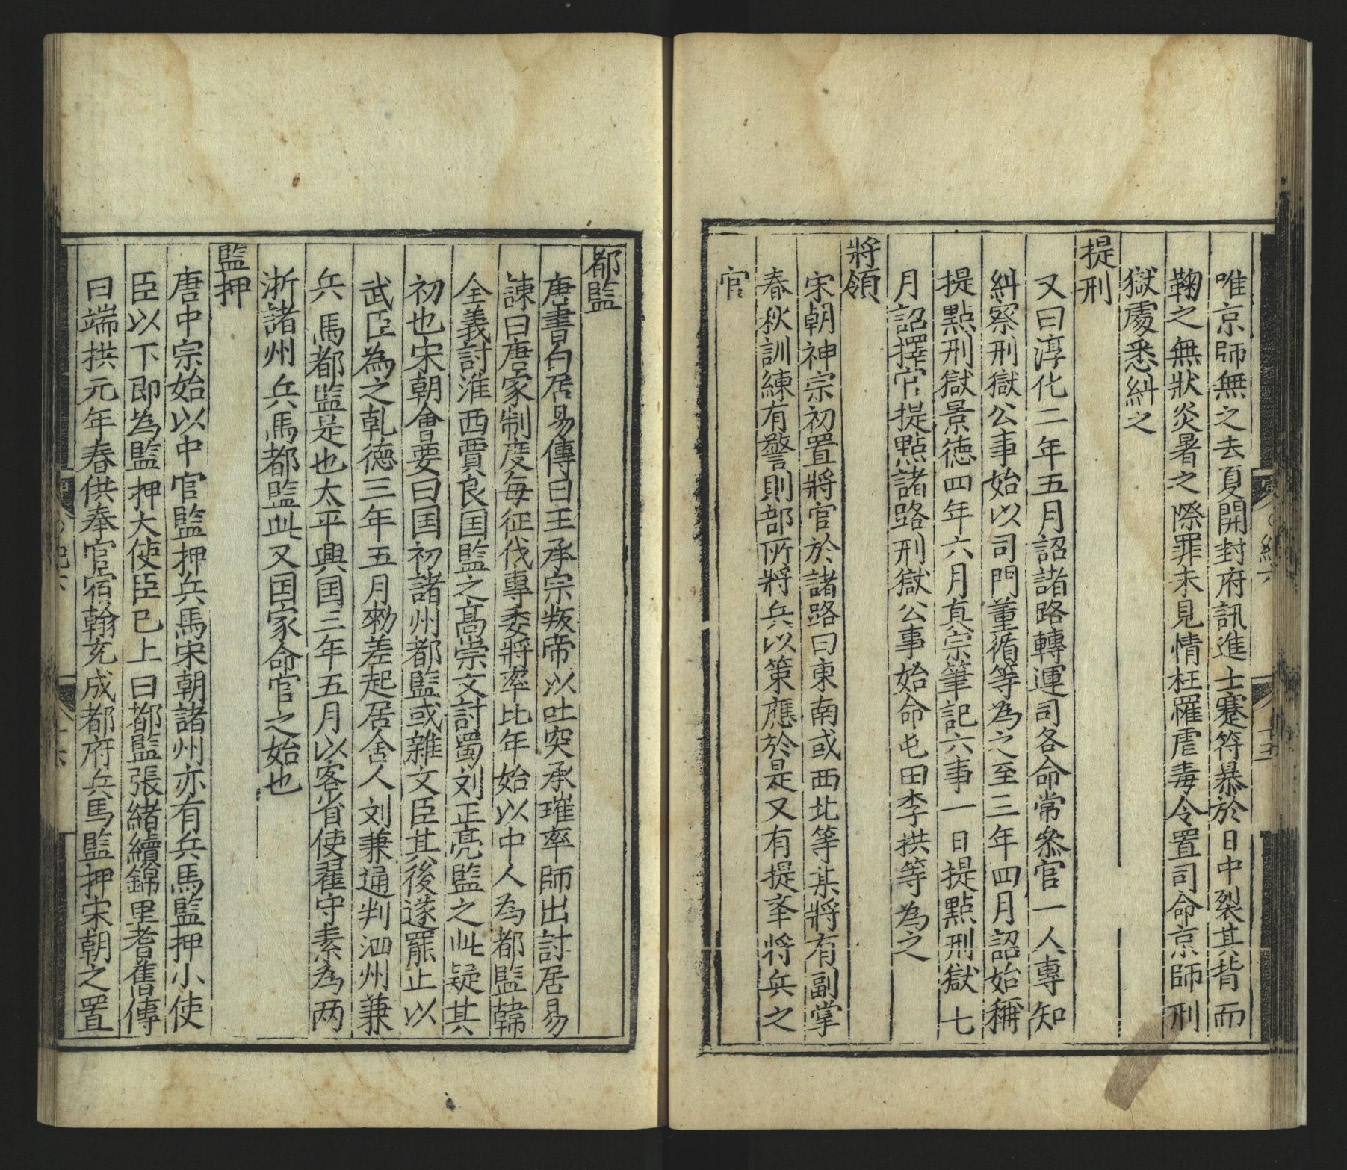 唯京師無之去夏開封府訊進士蹇符暴於日中裂其背而
鞠之無狀炎暑之際罪未見情枉罹虐毒令置司命京師刑
獄處悉糾之
提刑
又曰淳化二年五月詔諸路轉運司各命常叅官一人專知
糾察刑獄公事始以司門董循等為之至三年四月詔始稱
提點刑獄景德四年六月真宗筆記六事一日提點刑獄七
月詔擇官提點諸路刑獄公事始命屯田李拱等為之
將領
宋朝神宗初置將官於諸路曰東南或西北等某將有副掌
春秋訓練有警則部所將兵以策應於是又有提舉將兵之
官
都監
唐書白居易傳曰王承宗叛帝以吐突承璀率師出討居易
諫曰唐家制度每征伐專委將率比年始以中人為都監韓
全義討淮西賈良国監之髙崇文討蜀刘正亮監之此疑其
初也宋朝會要曰国初諸州都監或雜文臣其後遂罷止以
武臣為之乹德三年五月勑差起居舍人刘兼通判泗州兼
兵馬都監是也太平興国三年五月以客省使翟守素為两
浙諸州兵馬都監此又国家命官之始也
監押
唐中宗始以中官監押兵馬宋朝諸州亦有兵馬監押小使
臣以下即為監押大使臣已上曰都監張緒續錦里耆舊傳
曰端拱元年春供奉官宿翰充成都府兵馬監押宋朝之置